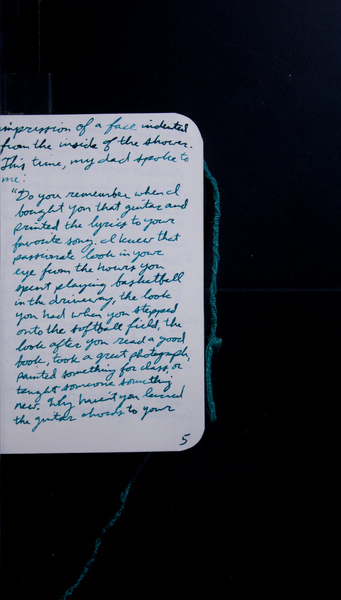 impression of a face indented
from the inside of the shower.
This time, my dad spoke to
me:
"Do you remember when I
bought you that guitar and
printed the lyrics to your
favorite song, I knew that
passionate look in your
eye from the hours you
spent playing basketball
in the driveway, the look
you had when you stepped
onto the softball field, the
look after you read a good
book, took a great photograph,
painted something for class, or
taught someone something
new. Why haven't you learned
the guitar chords to your
5